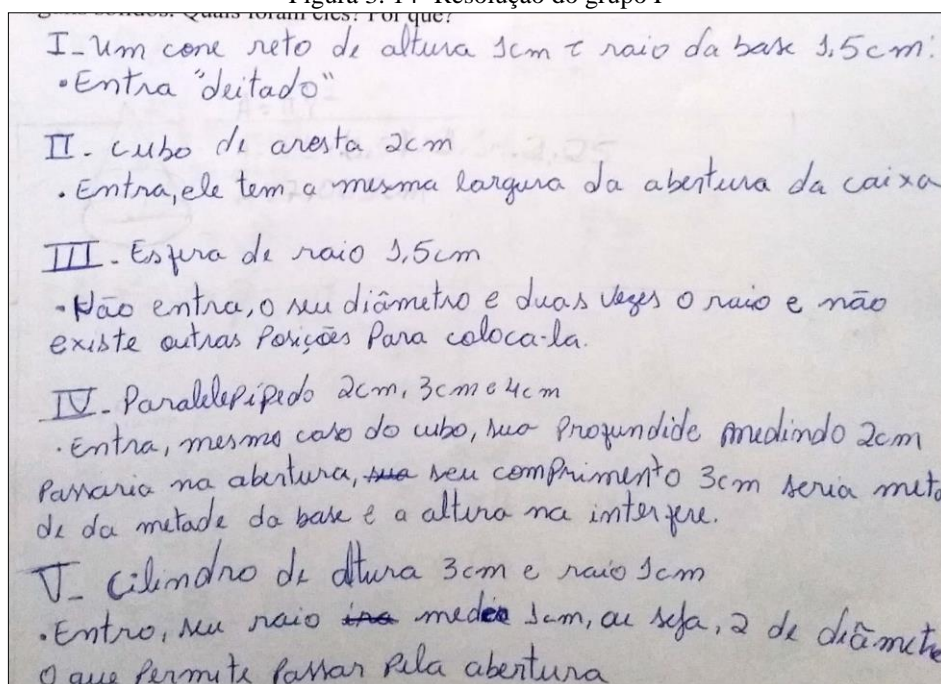 Figura 5. 14- Resolução do grupo I
guns sólidos. Quais foram eles? Por que?
I- Um cone reto de altura 1cm e raio da base 1.5cm:
• Entra "deitado"
II. cubo de aresta 2cm
. Entra, ele tem a mesma largura da abertura da caixa
III. Esfera de raio 1,5cm
- Não entra, o seu diâmetro e duas vezes o raio e não
existe outras Posições Para coloca-la.
IV. Paralelepipedo 2cm, 3cm e 4cm
. Entra, mesmo caso do cubo, sua Profundide medindo 2cm
Passaria na abertura, seu comprimento 3cm seria meta
de da metade da base e a altura na interfere.
V- Cilindro de altura 3cm e raio 1cm
. Entra, seu raio mede 1cm, ou seja, 2 de diâmetro
O que Permite Passar Pela abertura